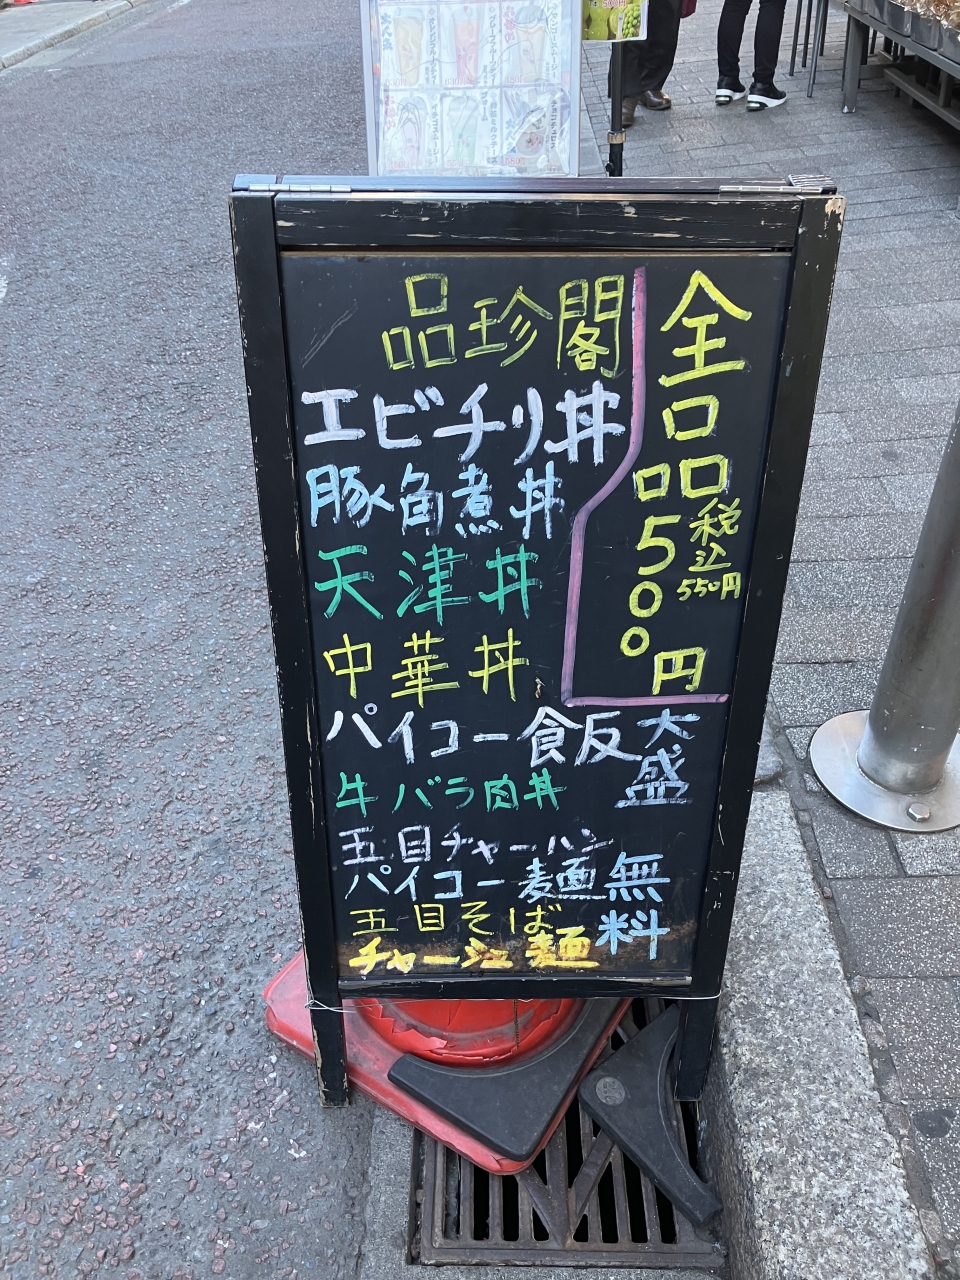 品珍閣
全品
500円
税込
550円
エビチリ丼
豚角煮丼
天津丼
中華丼
パイコー飯
牛バラ肉丼
五目チャーハン
パイコー麺
五目そば
チャーシュー麺
大盛
無料